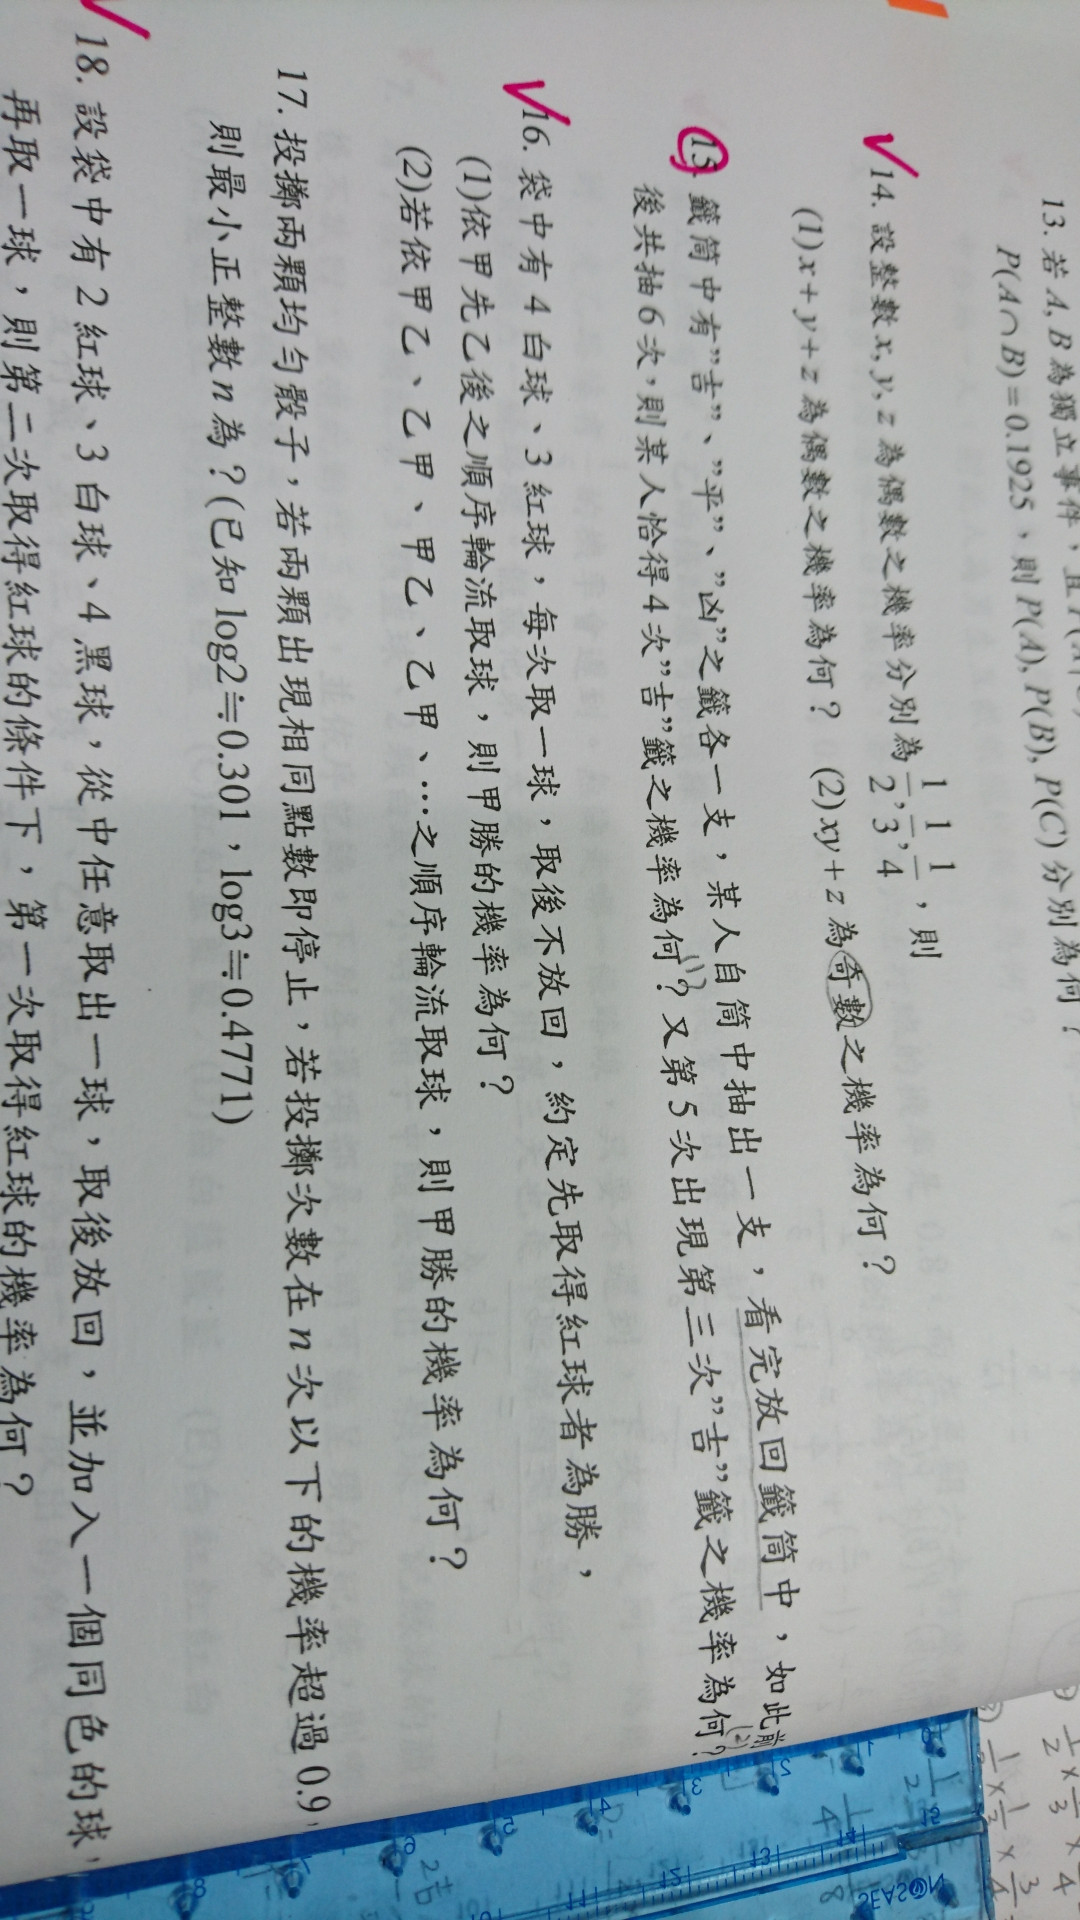 13. 若 A, B 為獨立事件，且
P(A∩B)=0.1925，則 P(A), P(B), P(C) 分別為何？
14. 設整數 x, y, z 為偶數之機率分別為 1/2, 1/3, 1/4，則
(1) x+y+z 為偶數之機率為何？ (2) xy+z 為奇數之機率為何？
15. 籤筒中有”吉”、”平”、”凶”之籤各一支，某人自筒中抽出一支，看完放回籤筒中，如此
後共抽 6 次，則某人恰得 4 次”吉”籤之機率為何？又第 5 次出現第三次”吉”籤之機率為何？
(1)
(2)
16. 袋中有 4 白球、3 紅球，每次取一球，取後不放回，約定先取得紅球者為勝，
(1)依甲先乙後之順序輪流取球，則甲勝的機率為何？
(2)若依甲乙、乙甲、甲乙、乙甲、…之順序輪流取球，則甲勝的機率為何？
17. 投擲兩顆均勻骰子，若兩顆出現相同點數即停止，若投擲次數在 n 次以下的機率超過 0.9，
則最小正整數 n 為？(已知 log2≒0.301，log3≒0.4771)
18. 設袋中有 2 紅球、3 白球、4 黑球，從中任意取出一球，取後放回，並加入一個同色的球，
再取一球，則第二次取得紅球的條件下，第一次取得紅球的機率為何？